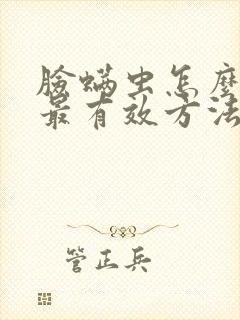 臉螨虫怎麼
最有效方法
管正兵